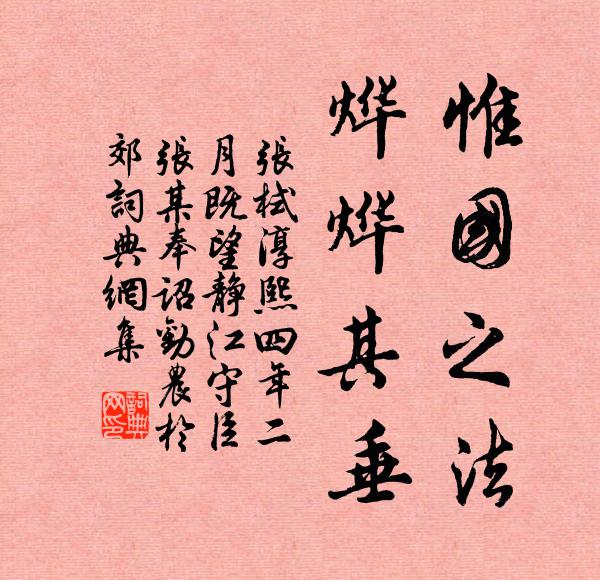 惟國之法
烨烨其垂
張栻淳熙四年二
月既望靜江守臣
張某奉詔勸農於
郊詞典網集
詞典
网印